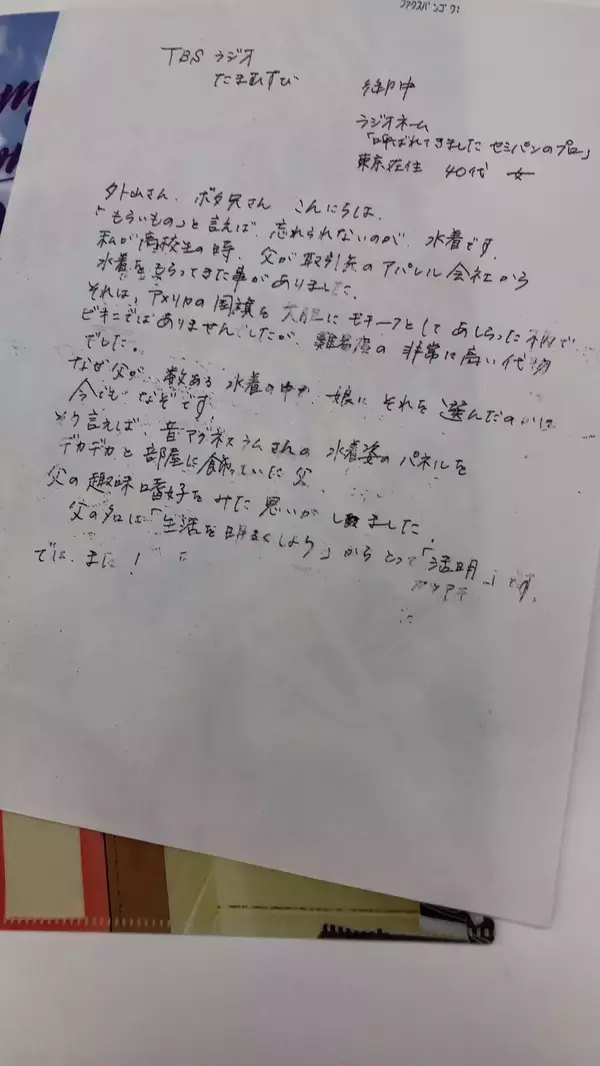 ファクスバンゴウ:
TBSラジオ
たまむすび
御中
ラジオネーム
「呼ばれてきました セミパンのプロ」
東京在住 40代 女
外山さん、ボタ兄さん こんにちは。
「もらいもの」と言えば、忘れられないのが、水着です。
私が高校生の時、父が取引先のアパレル会社から
水着をもらってきた事がありました。
それは、アメリカの国旗を大胆にモチーフとしてあしらった
ビキニではありませんでしたが、難易度の非常に高い代物
でした。
なぜ父が、数ある水着の中で、娘にそれを選んだのかは
今でもなぞです。
そう言えば、昔アグネスラムさんの水着姿のパネルを
デカデカと部屋に飾っていた父、
父の趣味嗜好をみた思いがしました。
父の名は「生活を明るくしよう」からとって「活明」です。
カツアキ
では、また!